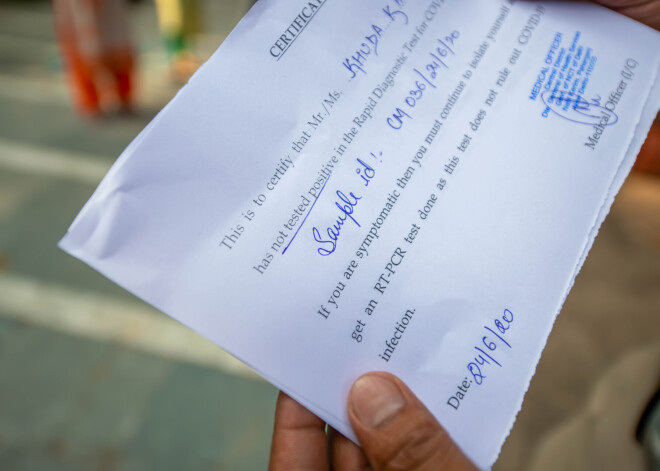 CERTIFICA
This is to certify that Mr./Ms. KHUDA
has not tested positive in the Rapid Diagnostic Test for COV
Sample id:- CM 036/24/6/20
If you are symptomatic then you must continue to isolate yourself
get an RT-PCR test done as this test does not rule out COVID-1
infection.
MEDICAL OFFICER
Medical Officer (I/C)
Date: 24/6/20